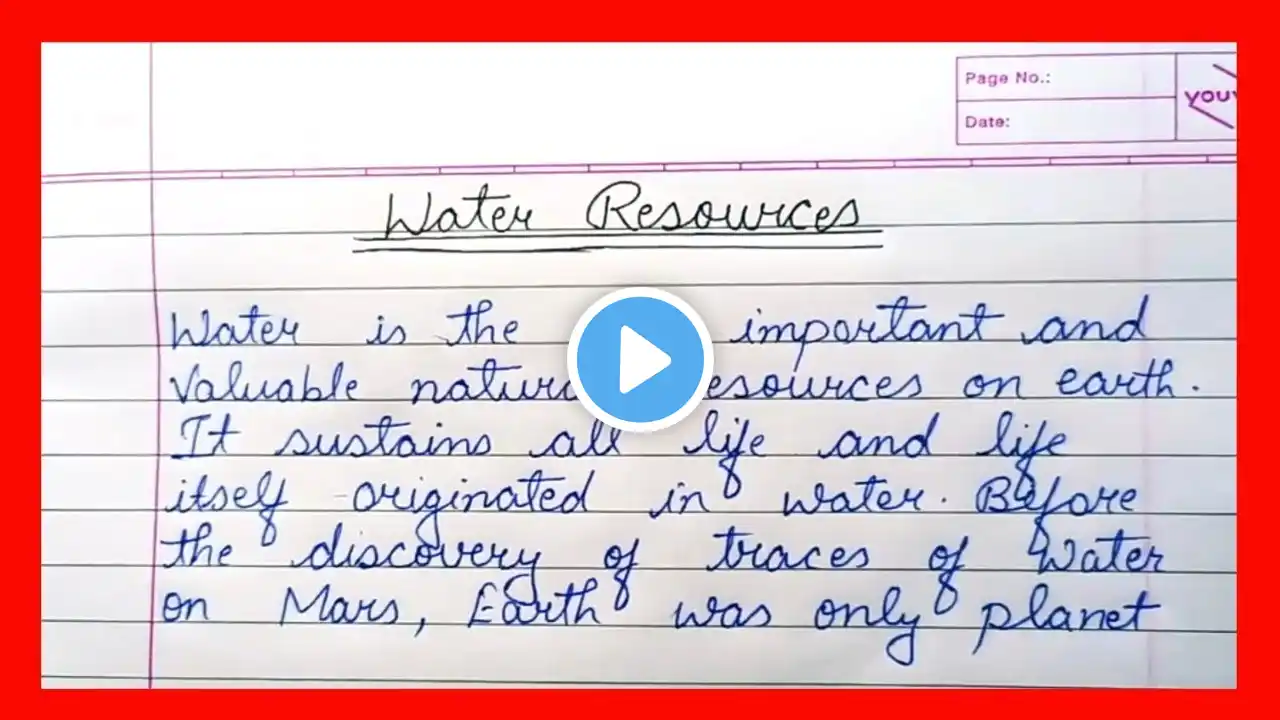 Page No.:
Date:
Water Resources
Water is the important and
valuable resources on earth.
It sustains all life and life
itself originated in water. Before
the discovery of traces of water
on Mars, Earth was only planet